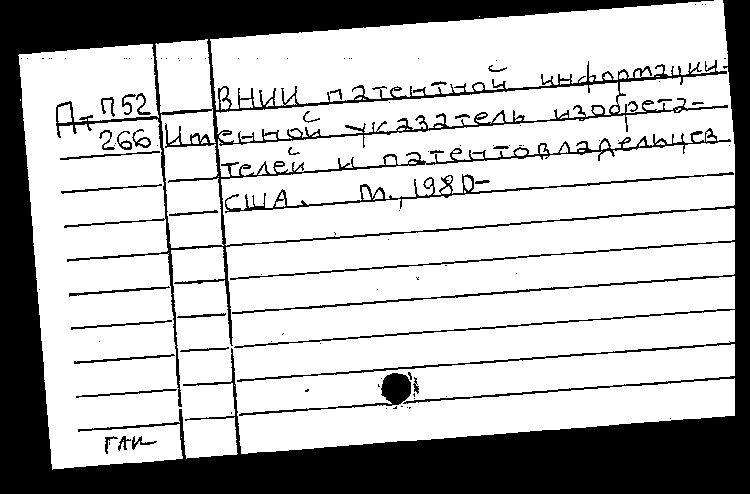 Пт П52 ВНИИ патентной информации.
266 Именной указатель изобрета-
телей и патентовладельцев
США. М., 1980-
ГАИ